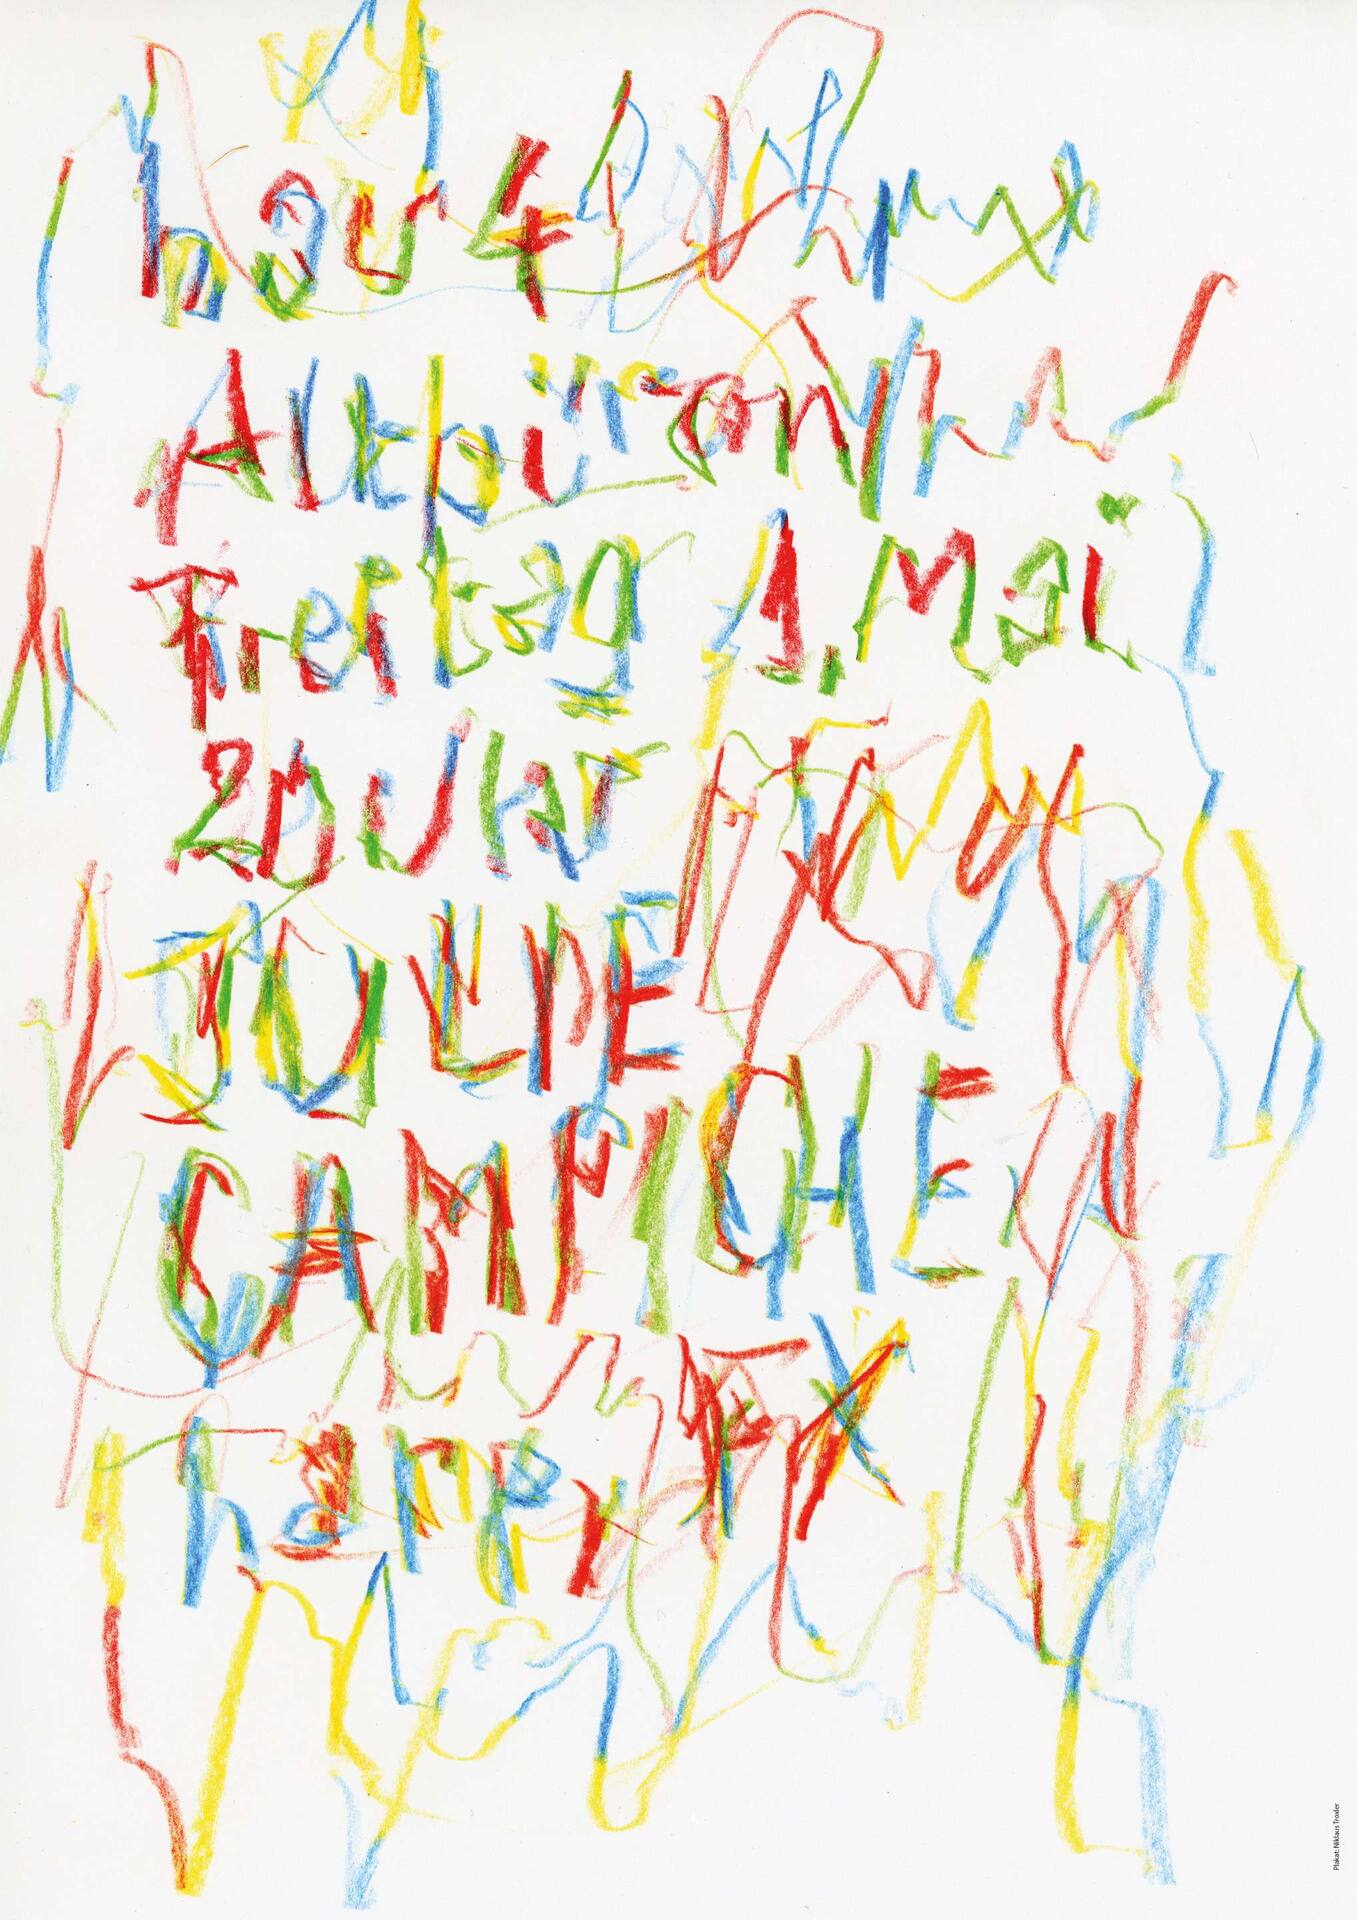 bau 4
Altbüron
Freitag 1. Mai
20 Uhr
JULIE
CAMPICHE
harp, FX
Plakat: Niklaus Troxler